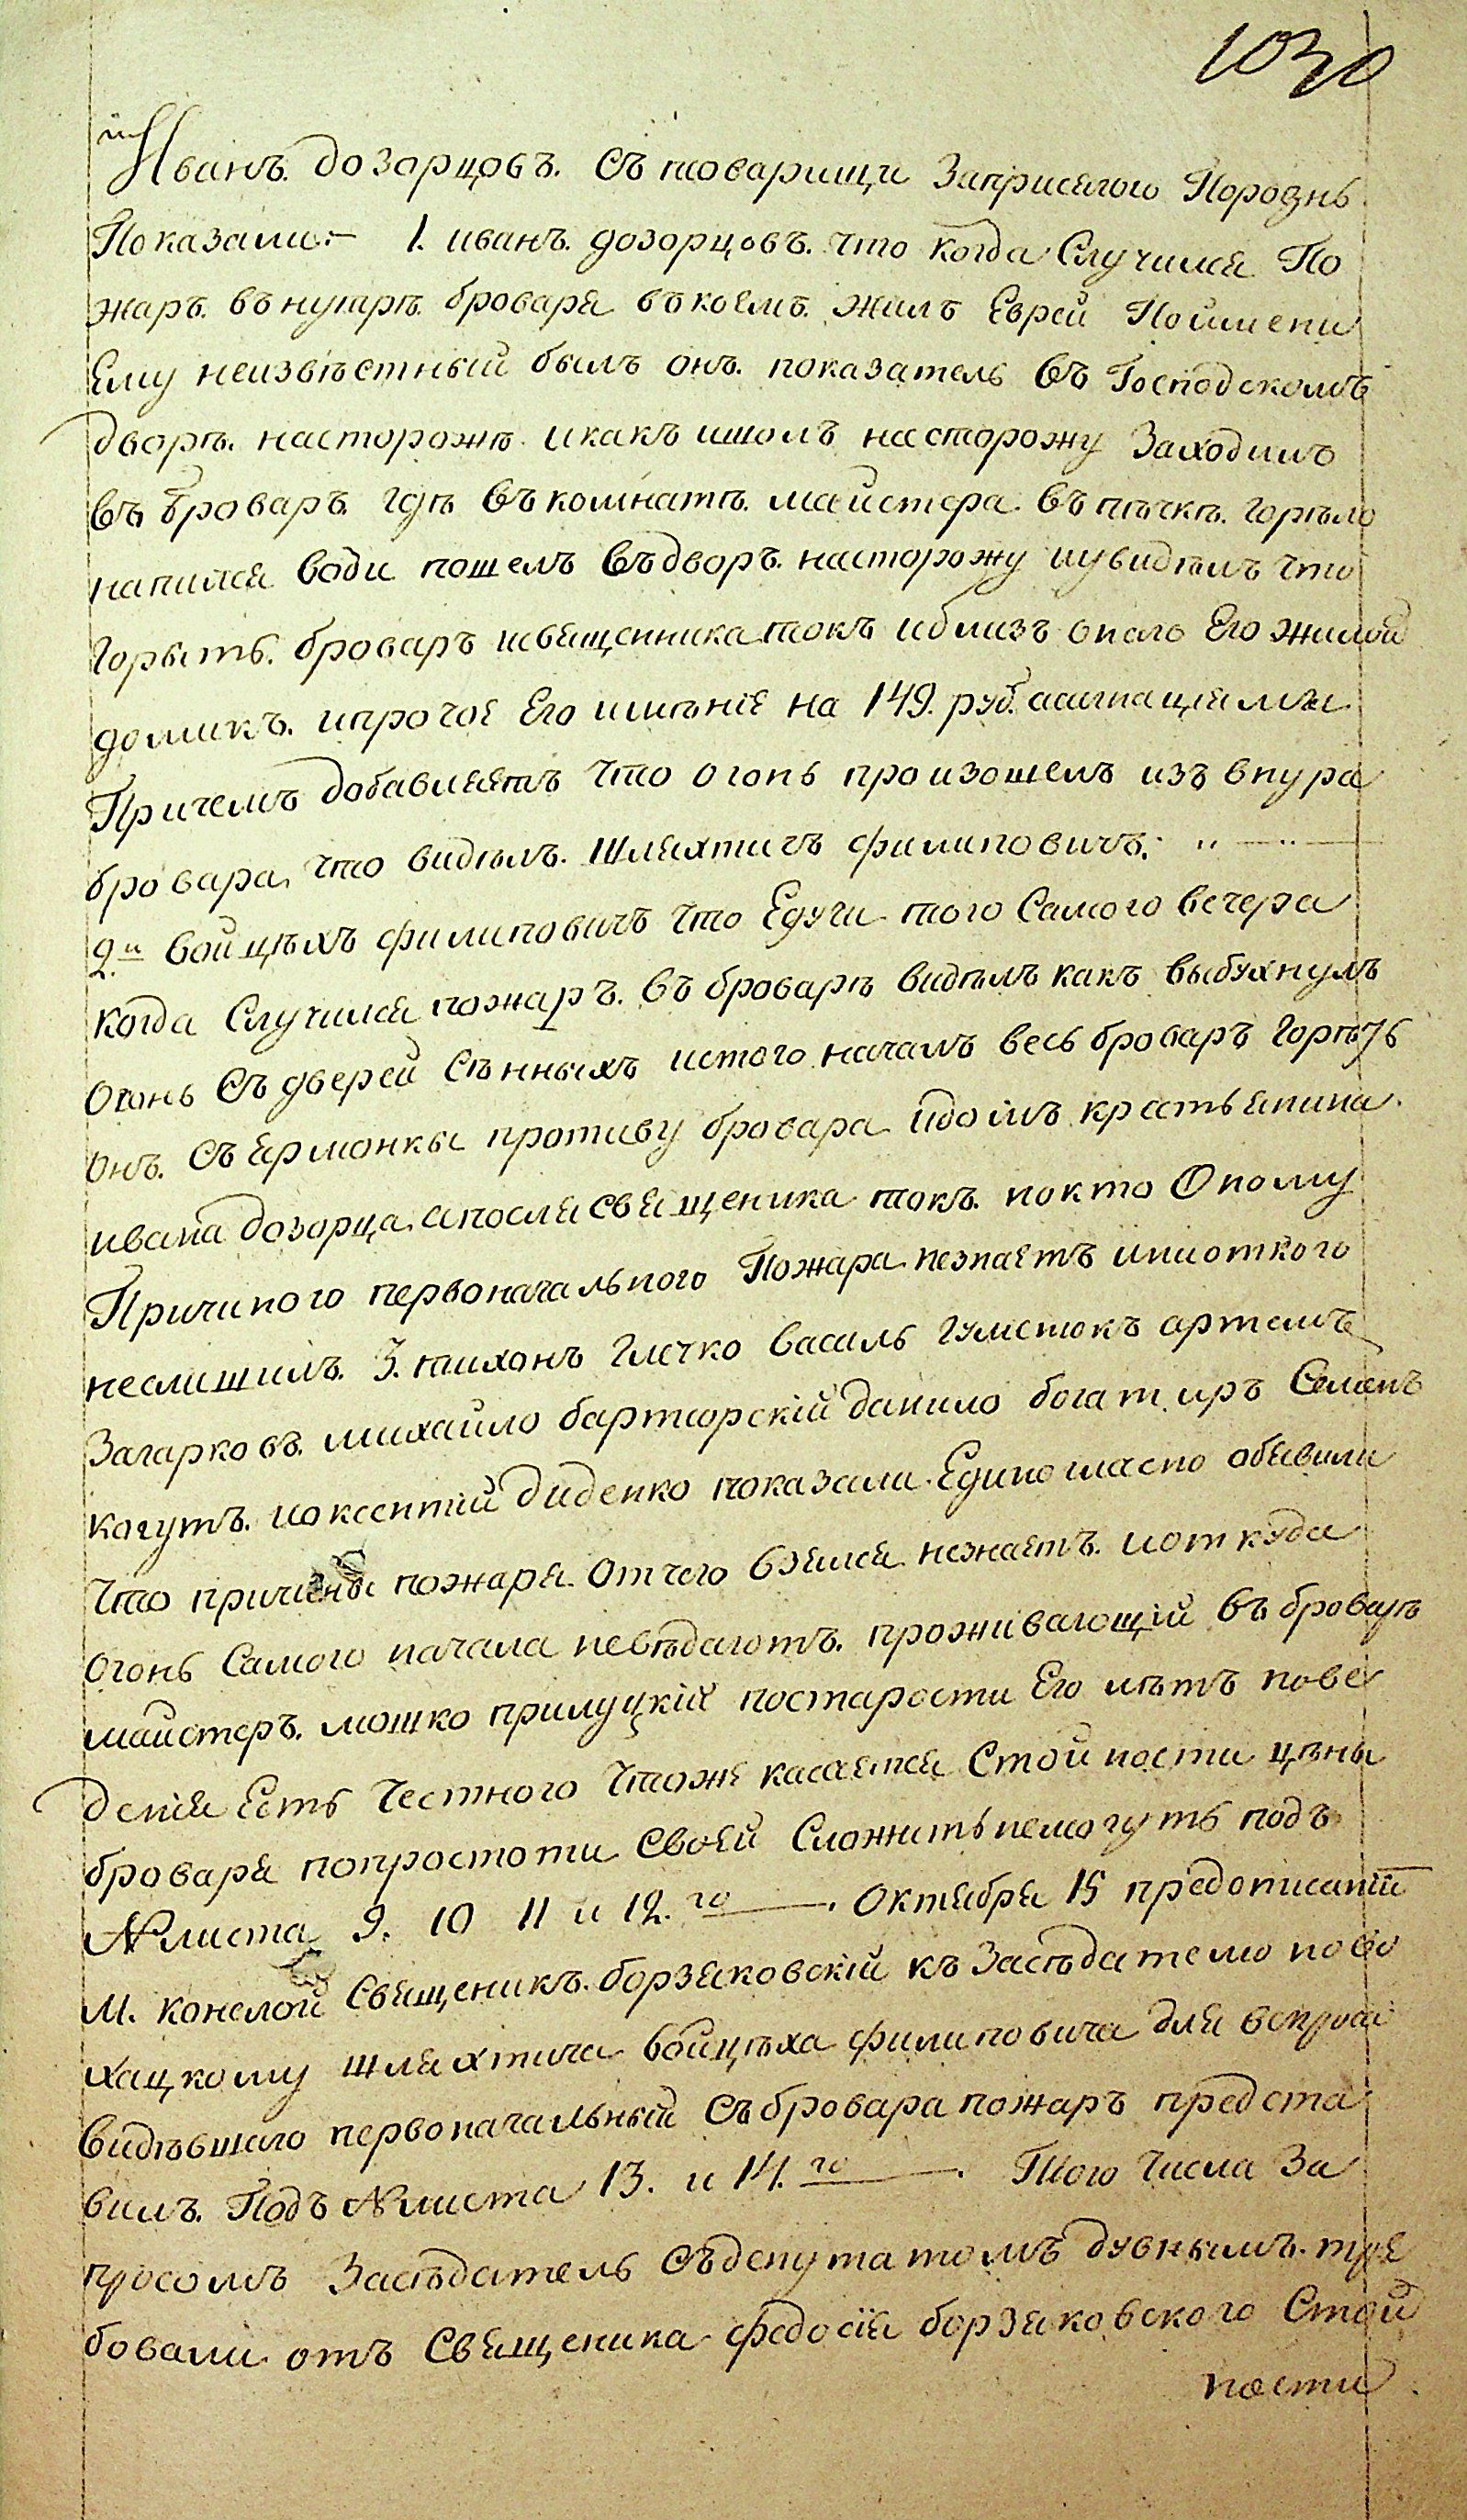 1030
Иванъ. дозорцовъ. Съ товарищи Заприсягою Порознь.
Показали:— 1. иванъ. дозорцовъ. что когда Случился По
жаръ. въ нутрѣ. бровара въ коемъ. жилъ Еврей По имени
Ему неизвѣстный былъ онъ. показатель въ Господскомъ
дворѣ. насторожѣ. икакъ ишолъ насторожу Заходилъ
въ броваръ. гдѣ въ комнатѣ. майстера. въ пѣчкѣ. горѣло
напился води пошелъ въ дворъ. насторожу иувидѣлъ что
горытъ. броваръ исвященника токъ иблизъ онаго Его жилой
домикъ. ипрочое Его имѣніе на 149. руб. асигнаціями.
Причемъ добавляетъ что огонь произошелъ изъ внутра
бровара, что видѣлъ. шляхтичъ филиповичъ;
2.й войцѣхъ филиповичъ что Едучи того Самого вечера
когда Случился пожаръ. въ броварѣ видѣлъ какъ выбухнулъ
огонь Съ дверей Сѣнныхъ истого началъ весь броваръ горѣть
онъ. Съ ярмонки противу бровара идомъ крестьянина.
ивана дозорца. апосля священика токъ. нокто Оному
Причиного первоначального Пожара незнаетъ ини от кого
неслишилъ. 3. тихонъ глечко василь гулстюкъ артемъ
Загарковъ. михайло барторскій данило богатиръ Семенъ
когутъ. иоксентій диденко показали. Единогласно обявили
что причины пожара. отчего взялся незнаетъ. иоткуда
огонь Самого начала невѣдаютъ. проживающій въ броварѣ
майстеръ. мошко прилуцкій постарости Его лѣтъ пове
денія Есть Честного Чтоже касается Стойности цѣны
бровара попростоти Своей Сложить немогутъ подъ
№ листа 9. 10 11 и 12.го . Октября 15 предописаній
м. конелой Священикъ. борзяковскій къ Засѣдателю пово
хацкому шляхтича войцѣха филиповича для вспроса
видѣвшаго первоначальный Съ бровара пожаръ предста
вилъ. Подъ № листа 13. и 14.го . Того Числа За
просомъ Засѣдатель Съ депутатомъ дувнымъ. тре
бовали отъ Священика федосія борзяковского Стой
ности